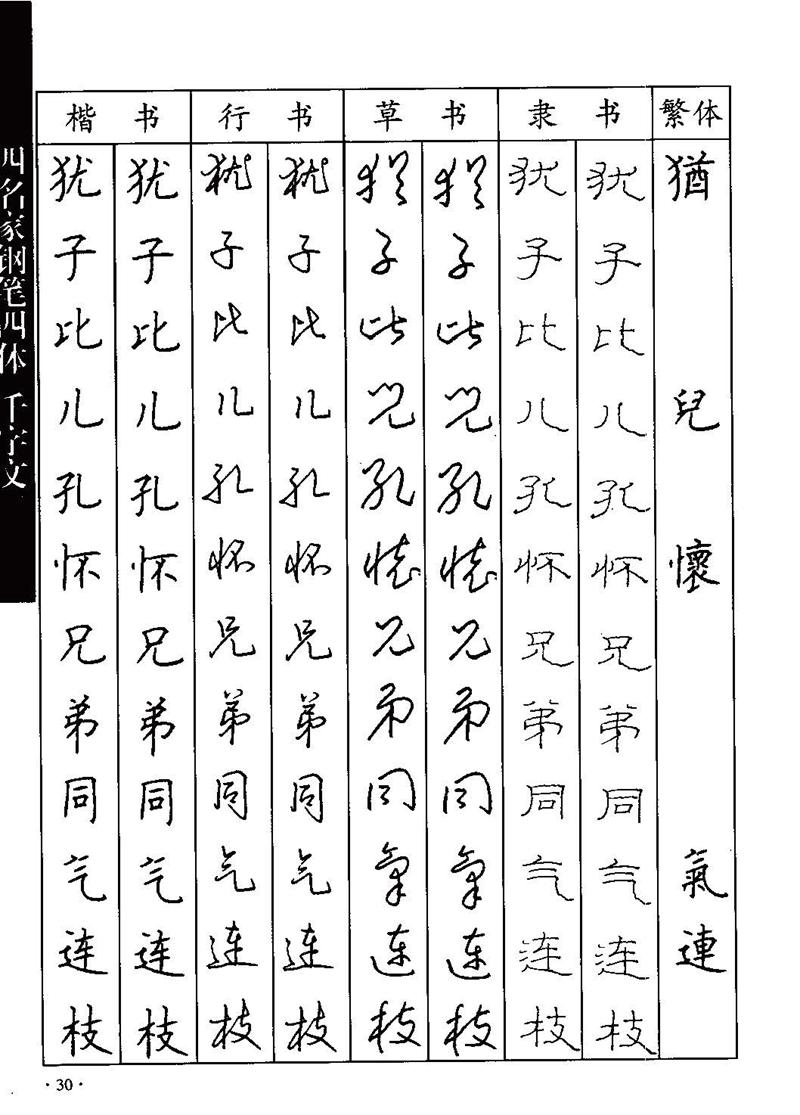 四名家钢笔四体 千字文
楷书 行书 草书 隶书 繁体
犹 犹 犹 犹 犹 犹 犹 犹 猶
子 子 子 子 子 子 子 子
比 比 比 比 比 比 比 比
儿 儿 儿 儿 兒 兒 儿 儿 兒
孔 孔 孔 孔 孔 孔 孔 孔
怀 怀 怀 怀 懷 懷 怀 怀 懷
兄 兄 兄 兄 兄 兄 兄 兄
弟 弟 弟 弟 弟 弟 弟 弟
同 同 同 同 同 同 同 同
气 气 气 气 氣 氣 气 气 氣
连 连 连 连 连 连 连 连 連
枝 枝 枝 枝 枝 枝 枝 枝
·30·